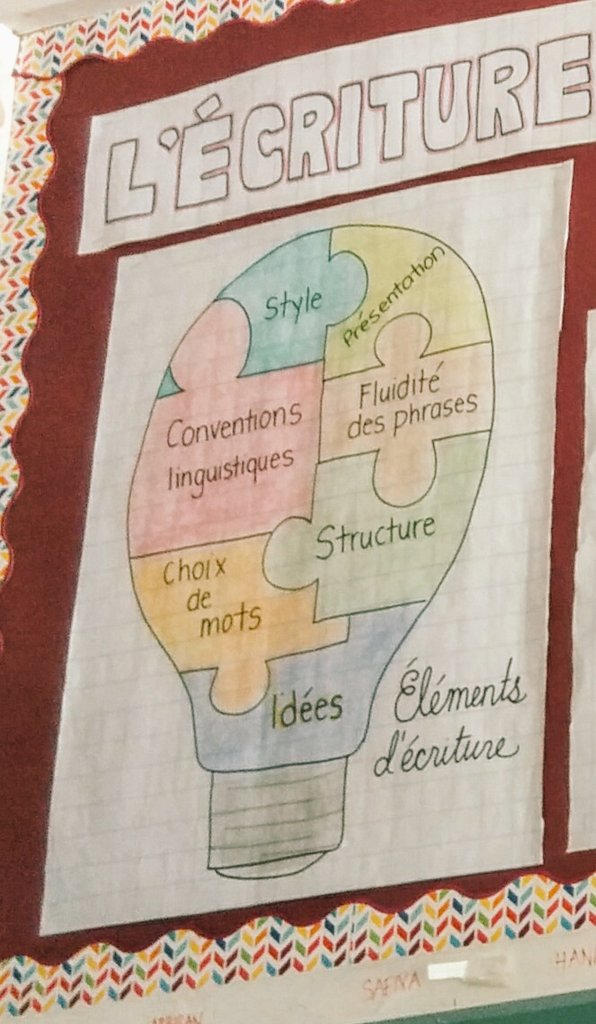 L'ÉCRITURE
Style
Présentation
Conventions
linguistiques
Fluidité
des phrases
Structure
Choix
de
mots
Idées
Éléments
d'écriture
SAFIYA